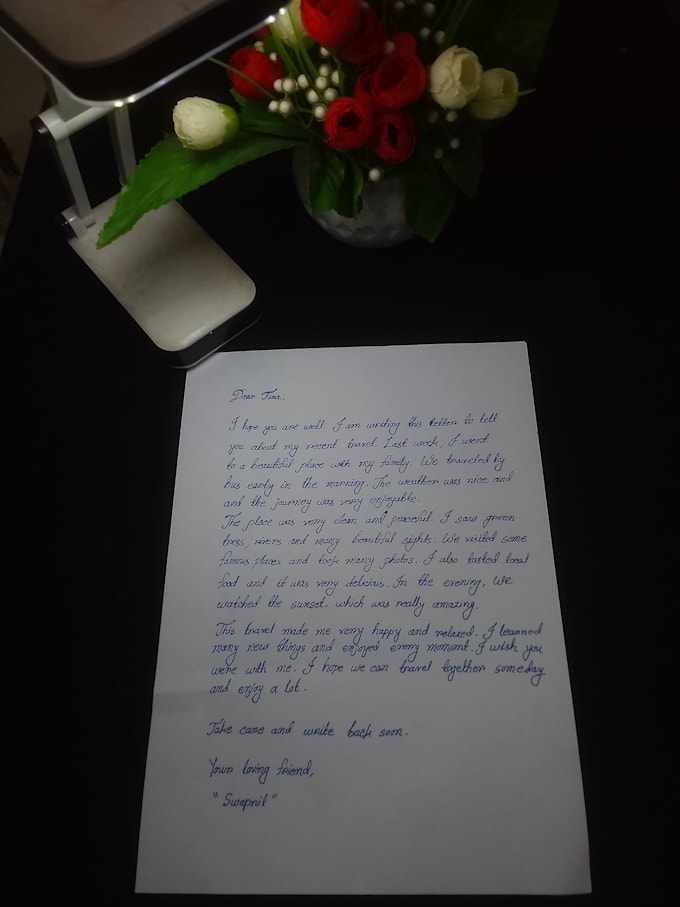 Dear Tina,
I hope you are well. I am writing this letter to tell
you about my recent travel. Last week, I went
to a beautiful place with my family. We traveled by
bus early in the manning. The weather was nice and
and the journey was very enjoyable.
The place was very clean and peaceful. I saw green
tress, rivers and many beautiful sights. We visited same
famous places and took many photos. I also tasted local
food and it was very delicious. In the evening, we
watched the sunset, which was really amazing.
This travel made me very happy and relaxed. I learned
many new things and enjoyed every moment. I wish you
were with me. I hope we can travel together someday
and enjoy a lot.
Take care and write back soon.
Your loving friend,
"Swapnil"